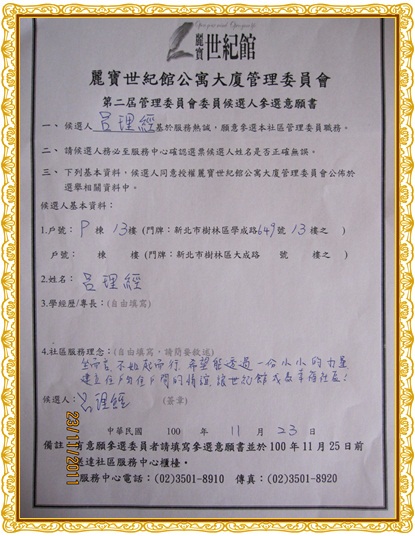 麗寶
世紀館
麗寶世紀館公寓大廈管理委員會
第二屆管理委員會委員候選人參選意願書
一、候選人呂理經基於服務熱誠,願意參選本社區管理委員職務。
二、請候選人務必至服務中心確認選票候選人姓名是否正確無誤。
三、下列基本資料,候選人同意授權麗寶世紀館公寓大廈管理委員會公佈於
選舉相關資料中。
候選人基本資料:
1.戶號: P 棟 13 樓 (門牌:新北市樹林區學成路649號 13 樓之 )
戶號: 棟 樓 (門牌:新北市樹林區大成路 號 樓之 )
2.姓名: 呂理經
3.學經歷/專長:(自由填寫)
4.社區服務理念:(自由填寫,請簡要敘述)
坐而言不如起而行,希望能透過一份小小的力量
建立住戶與住戶間的情誼,讓世紀館成為幸福社區!
候選人: 呂理經 (簽章)
中華民國 100 年 11 月 23 日
備註:有意願參選委員者請填寫參選意願書並於 100 年 11 月 25 日前
送達社區服務中心櫃檯。
服務中心電話:(02)3501-8910 傳真:(02)3501-8920
23/11/2011